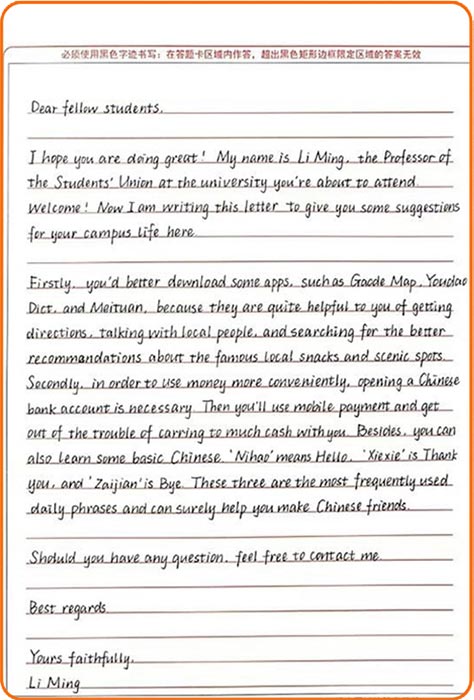 必须使用黑色字迹书写；在答题卡区域内作答，超出黑色矩形边框限定区域的答案无效
Dear fellow students,
I hope you are doing great! My name is Li Ming, the Professor of
the Students' Union at the university you're about to attend.
Welcome! Now I am writing this letter to give you some suggestions
for your campus life here.
Firstly, you'd better download some apps, such as Gaode Map, Youdao
Dict, and Meituan, because they are quite helpful to you of getting
directions, talking with local people, and searching for the better
recommendations about the famous local snacks and scenic spots.
Secondly, in order to use money more conveniently, opening a Chinese
bank account is necessary. Then you'll use mobile payment and get
out of the trouble of carring to much cash with you. Besides, you can
also learn some basic Chinese. 'Nihao' means Hello, 'Xiexie' is Thank
you, and 'Zaijian' is Bye. These three are the most frequently used
daily phrases and can surely help you make Chinese friends.
Should you have any question, feel free to contact me.
Best regards
Yours faithfully,
Li Ming